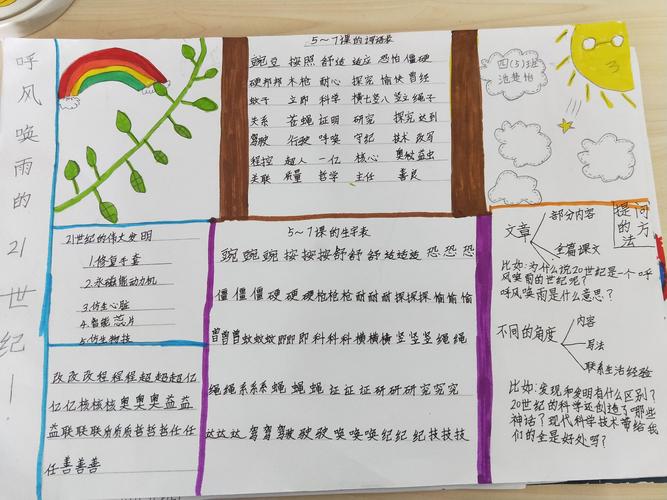 呼风唤雨的21世纪！
5~7课的词语表
豌豆 按照 舒适 适应 恐怕 僵硬
硬邦邦 木枪 耐心 探究 愉快 曾经
蚊子 立即 科学 横七竖八 竖立 绳子
关系 苍蝇 证明 研究 探究 达到
驾驶 行驶 呼唤 守纪 技术 改写
程控 超人 一亿 核心 奥妙 益虫
关联 质量 哲学 主任 善良
四(3)班
21世纪的伟大发明
1.修复手套
2.永磁能动机
3.仿生心脏
4.智能芯片
5.仿生物技
5~7课的生字表
豌豌豌 按按按 舒舒舒 适适适 恐恐恐
僵僵僵 硬硬硬 枪枪枪 耐耐耐 探探探 愉愉愉
曾曾曾 蚊蚊蚊 即即即 科科科 横横横 竖竖竖 绳绳
绳绳 系系系 蝇蝇蝇 证证证 研研研 究究究
达达达 驾驾驾 驶驶 唤唤唤 纪纪纪 技技技
改改改 程程程 超超超 亿
亿亿 核核核 奥奥奥 益益
益 联联联 质质质 哲哲哲 任任
任 善善善
提问的方法
文章
部分内容
全篇课文
比如:为什么说20世纪是一个呼
风唤雨的世纪呢?
呼风唤雨是什么意思?
不同的角度
内容
写法
联系生活经验
比如:发现和发明有什么区别?
20世纪的科学还创造了哪些
神话?现代科学技术带给我
们的全是好处吗?